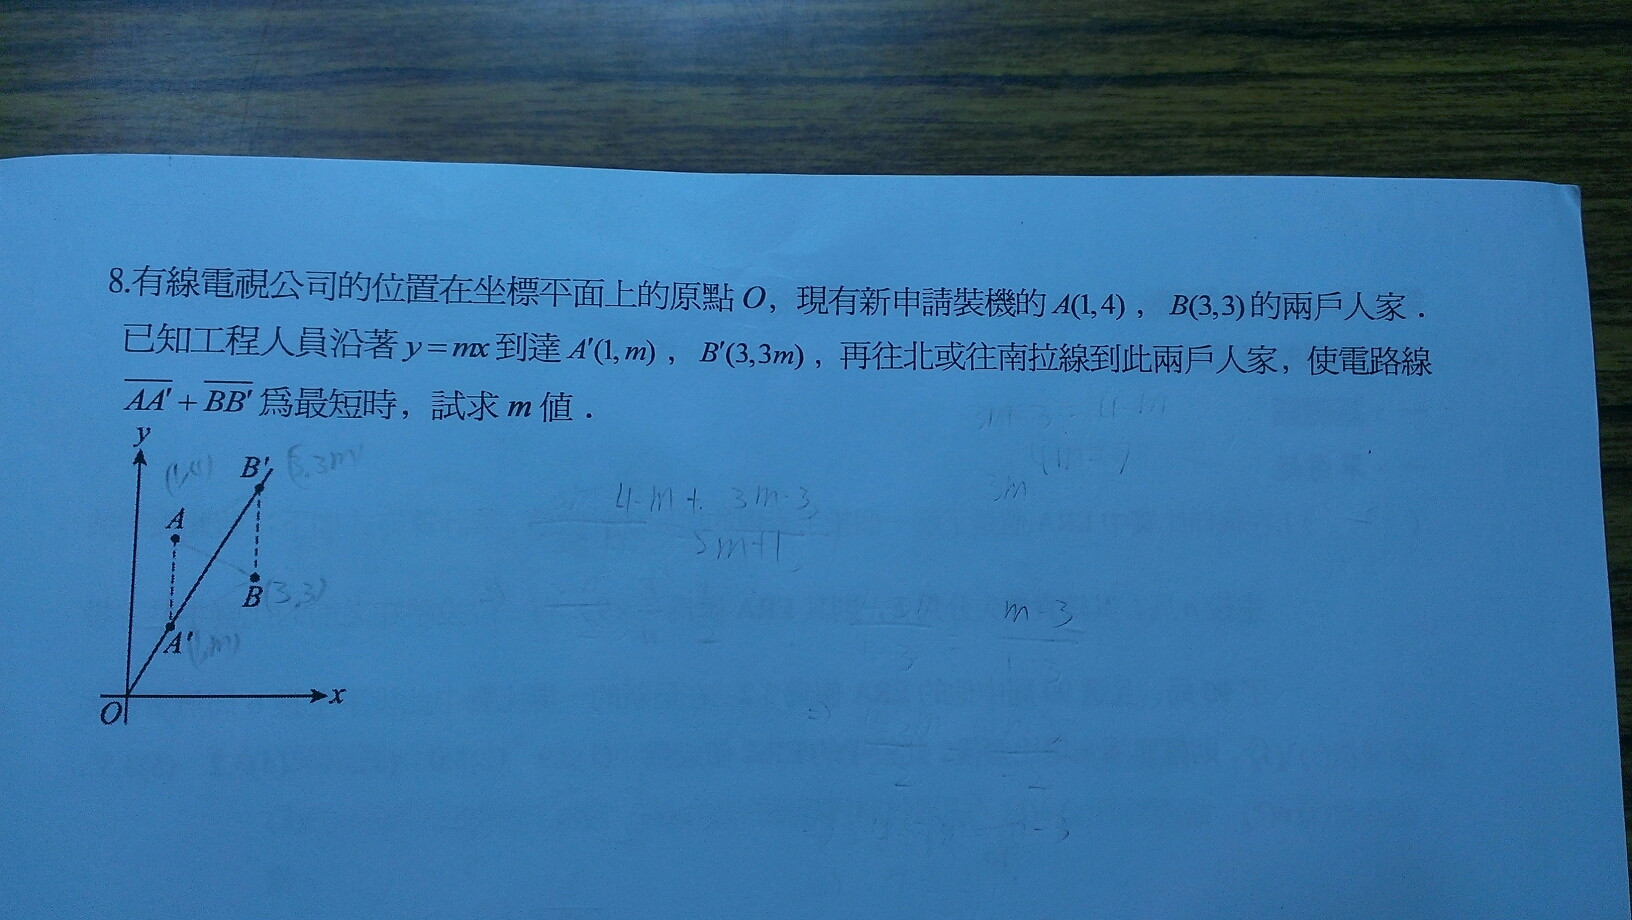 8.有線電視公司的位置在坐標平面上的原點 O，現有新申請裝機的 A(1,4)，B(3,3)的兩戶人家．
已知工程人員沿著 y=mx 到達 A′(1,m)，B′(3,3m)，再往北或往南拉線到此兩戶人家，使電路線
AA′+BB′ 為最短時，試求 m 值．
y
B′
(1,4)
(3,3m)
A
B
(3,3)
A′
(1,m)
O
x
4-m+3m-3
3m-3=4-m
3m
m-3